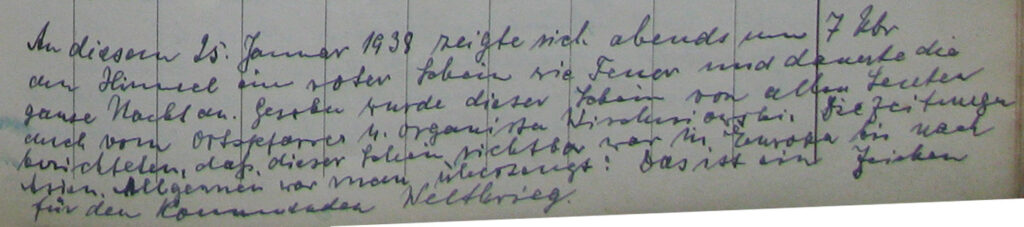 An diesem 25. Januar 1938 zeigte sich abends um 7 Uhr
am Himmel ein roter Schein wie Feuer und dauerte die
ganze Nacht an. Gesehen wurde dieser Schein von allen Leuten
auch vom Ortspfarrer u. Organisten Die Zeitungen
berichteten, daß dieser Schein sichtbar war in Europa bis nach
Asien. Allgemein war man überzeugt: Das ist ein Zeichen
für den kommenden Weltkrieg.